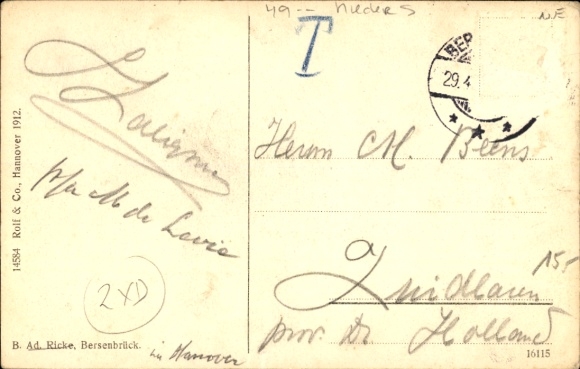 49 -- Nieders
NE
T
BER
29.4
Herrn M. Beens
p/a M de Levie
Zuidlaren
15.-
prov. Dr. Holland
2XD
in Hanover
B. Ad. Ricke, Bersenbrück.
16115
14584 Rolf & Co., Hannover 1912.